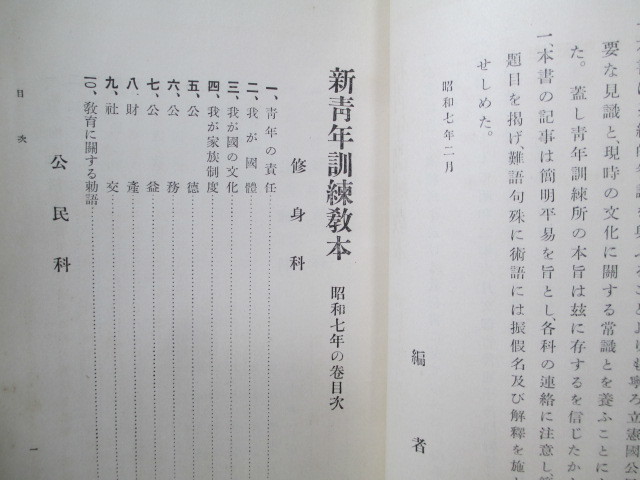 要な見識と、現時の文化に關する常識とを養ふことに
た。蓋し靑年訓練所の本旨は玆に存するを信じたか
一、本書の記事は簡明平易を旨とし、各科の連絡に注意し、
題目を揭げ、難語句殊に術語には振假名及び解釋を施
せしめた。
昭和七年二月
編者
新靑年訓練敎本 昭和七年の卷目次
修身科
一、靑年の責任
二、我が國體
三、我が國の文化
四、我が家族制度
五、公德
六、公務
七、公益
八、財產
九、社交
一〇、敎育に關する勅語
公民科
目次
一